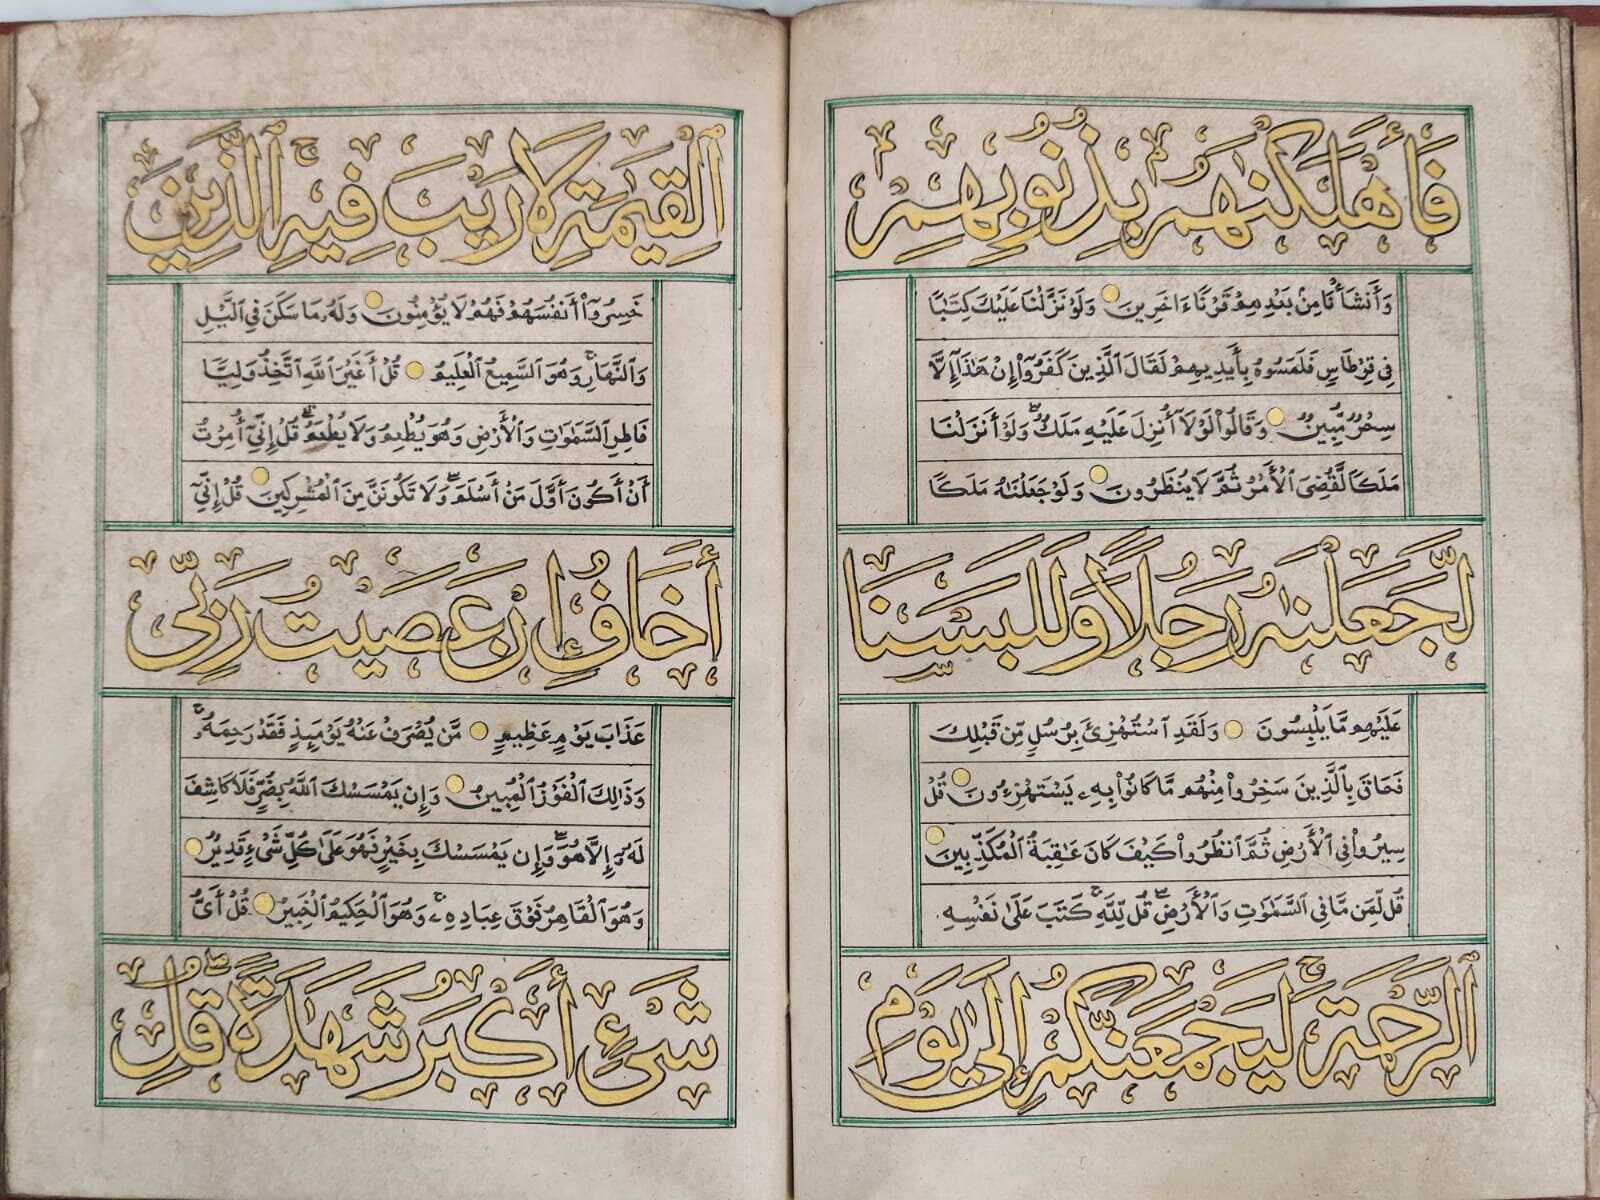 فَأَهْلَكْنَٰهُم بِذُنُوبِهِمْ
وَأَنشَأْنَا مِنۢ بَعْدِهِمْ قَرْنًا ءَاخَرِينَ وَلَوْ نَزَّلْنَا عَلَيْكَ كِتَٰبًا
فِي قِرْطَاسٍ فَلَمَسُوهُ بِأَيْدِيهِمْ لَقَالَ ٱلَّذِينَ كَفَرُوٓا۟ إِنْ هَٰذَآ إِلَّا
سِحْرٌ مُّبِينٌ وَقَالُوا۟ لَوْلَآ أُنزِلَ عَلَيْهِ مَلَكٌ ۖ وَلَوْ أَنزَلْنَا
مَلَكًا لَّقُضِىَ ٱلْأَمْرُ ثُمَّ لَا يُنظَرُونَ وَلَوْ جَعَلْنَٰهُ مَلَكًا
لَّجَعَلْنَٰهُ رَجُلًا وَلَلَبَسْنَا
عَلَيْهِم مَّا يَلْبِسُونَ وَلَقَدِ ٱسْتُهْزِئَ بِرُسُلٍ مِّن قَبْلِكَ
فَحَاقَ بِٱلَّذِينَ سَخِرُوا۟ مِنْهُم مَّا كَانُوا۟ بِهِۦ يَسْتَهْزِءُونَ قُلْ
سِيرُوا۟ فِي ٱلْأَرْضِ ثُمَّ ٱنظُرُوا۟ كَيْفَ كَانَ عَٰقِبَةُ ٱلْمُكَذِّبِينَ
قُل لِّمَن مَّا فِي ٱلسَّمَٰوَٰتِ وَٱلْأَرْضِ ۖ قُل لِّلَّهِ ۚ كَتَبَ عَلَىٰ نَفْسِهِ
ٱلرَّحْمَةَ ۚ لَيَجْمَعَنَّكُمْ إِلَىٰ يَوْمِ
ٱلْقِيَٰمَةِ لَا رَيْبَ فِيهِ ۚ ٱلَّذِينَ
خَسِرُوٓا۟ أَنفُسَهُمْ فَهُمْ لَا يُؤْمِنُونَ وَلَهُۥ مَا سَكَنَ فِي ٱلَّيْلِ
وَٱلنَّهَارِ ۚ وَهُوَ ٱلسَّمِيعُ ٱلْعَلِيمُ قُلْ أَغَيْرَ ٱللَّهِ أَتَّخِذُ وَلِيًّا
فَاطِرِ ٱلسَّمَٰوَٰتِ وَٱلْأَرْضِ وَهُوَ يُطْعِمُ وَلَا يُطْعَمُ ۗ قُلْ إِنِّيٓ أُمِرْتُ
أَنْ أَكُونَ أَوَّلَ مَنْ أَسْلَمَ ۖ وَلَا تَكُونَنَّ مِنَ ٱلْمُشْرِكِينَ قُلْ إِنِّيٓ
أَخَافُ إِنْ عَصَيْتُ رَبِّي
عَذَابَ يَوْمٍ عَظِيمٍ مَّن يُصْرَفْ عَنْهُ يَوْمَئِذٍ فَقَدْ رَحِمَهُۥ ۚ
وَذَٰلِكَ ٱلْفَوْزُ ٱلْمُبِينُ وَإِن يَمْسَسْكَ ٱللَّهُ بِضُرٍّ فَلَا كَاشِفَ
لَهُۥٓ إِلَّا هُوَ ۖ وَإِن يَمْسَسْكَ بِخَيْرٍ فَهُوَ عَلَىٰ كُلِّ شَىْءٍ قَدِيرٌ
وَهُوَ ٱلْقَاهِرُ فَوْقَ عِبَادِهِۦ ۚ وَهُوَ ٱلْحَكِيمُ ٱلْخَبِيرُ قُلْ أَىُّ
شَىْءٍ أَكْبَرُ شَهَٰدَةً ۖ قُلِ